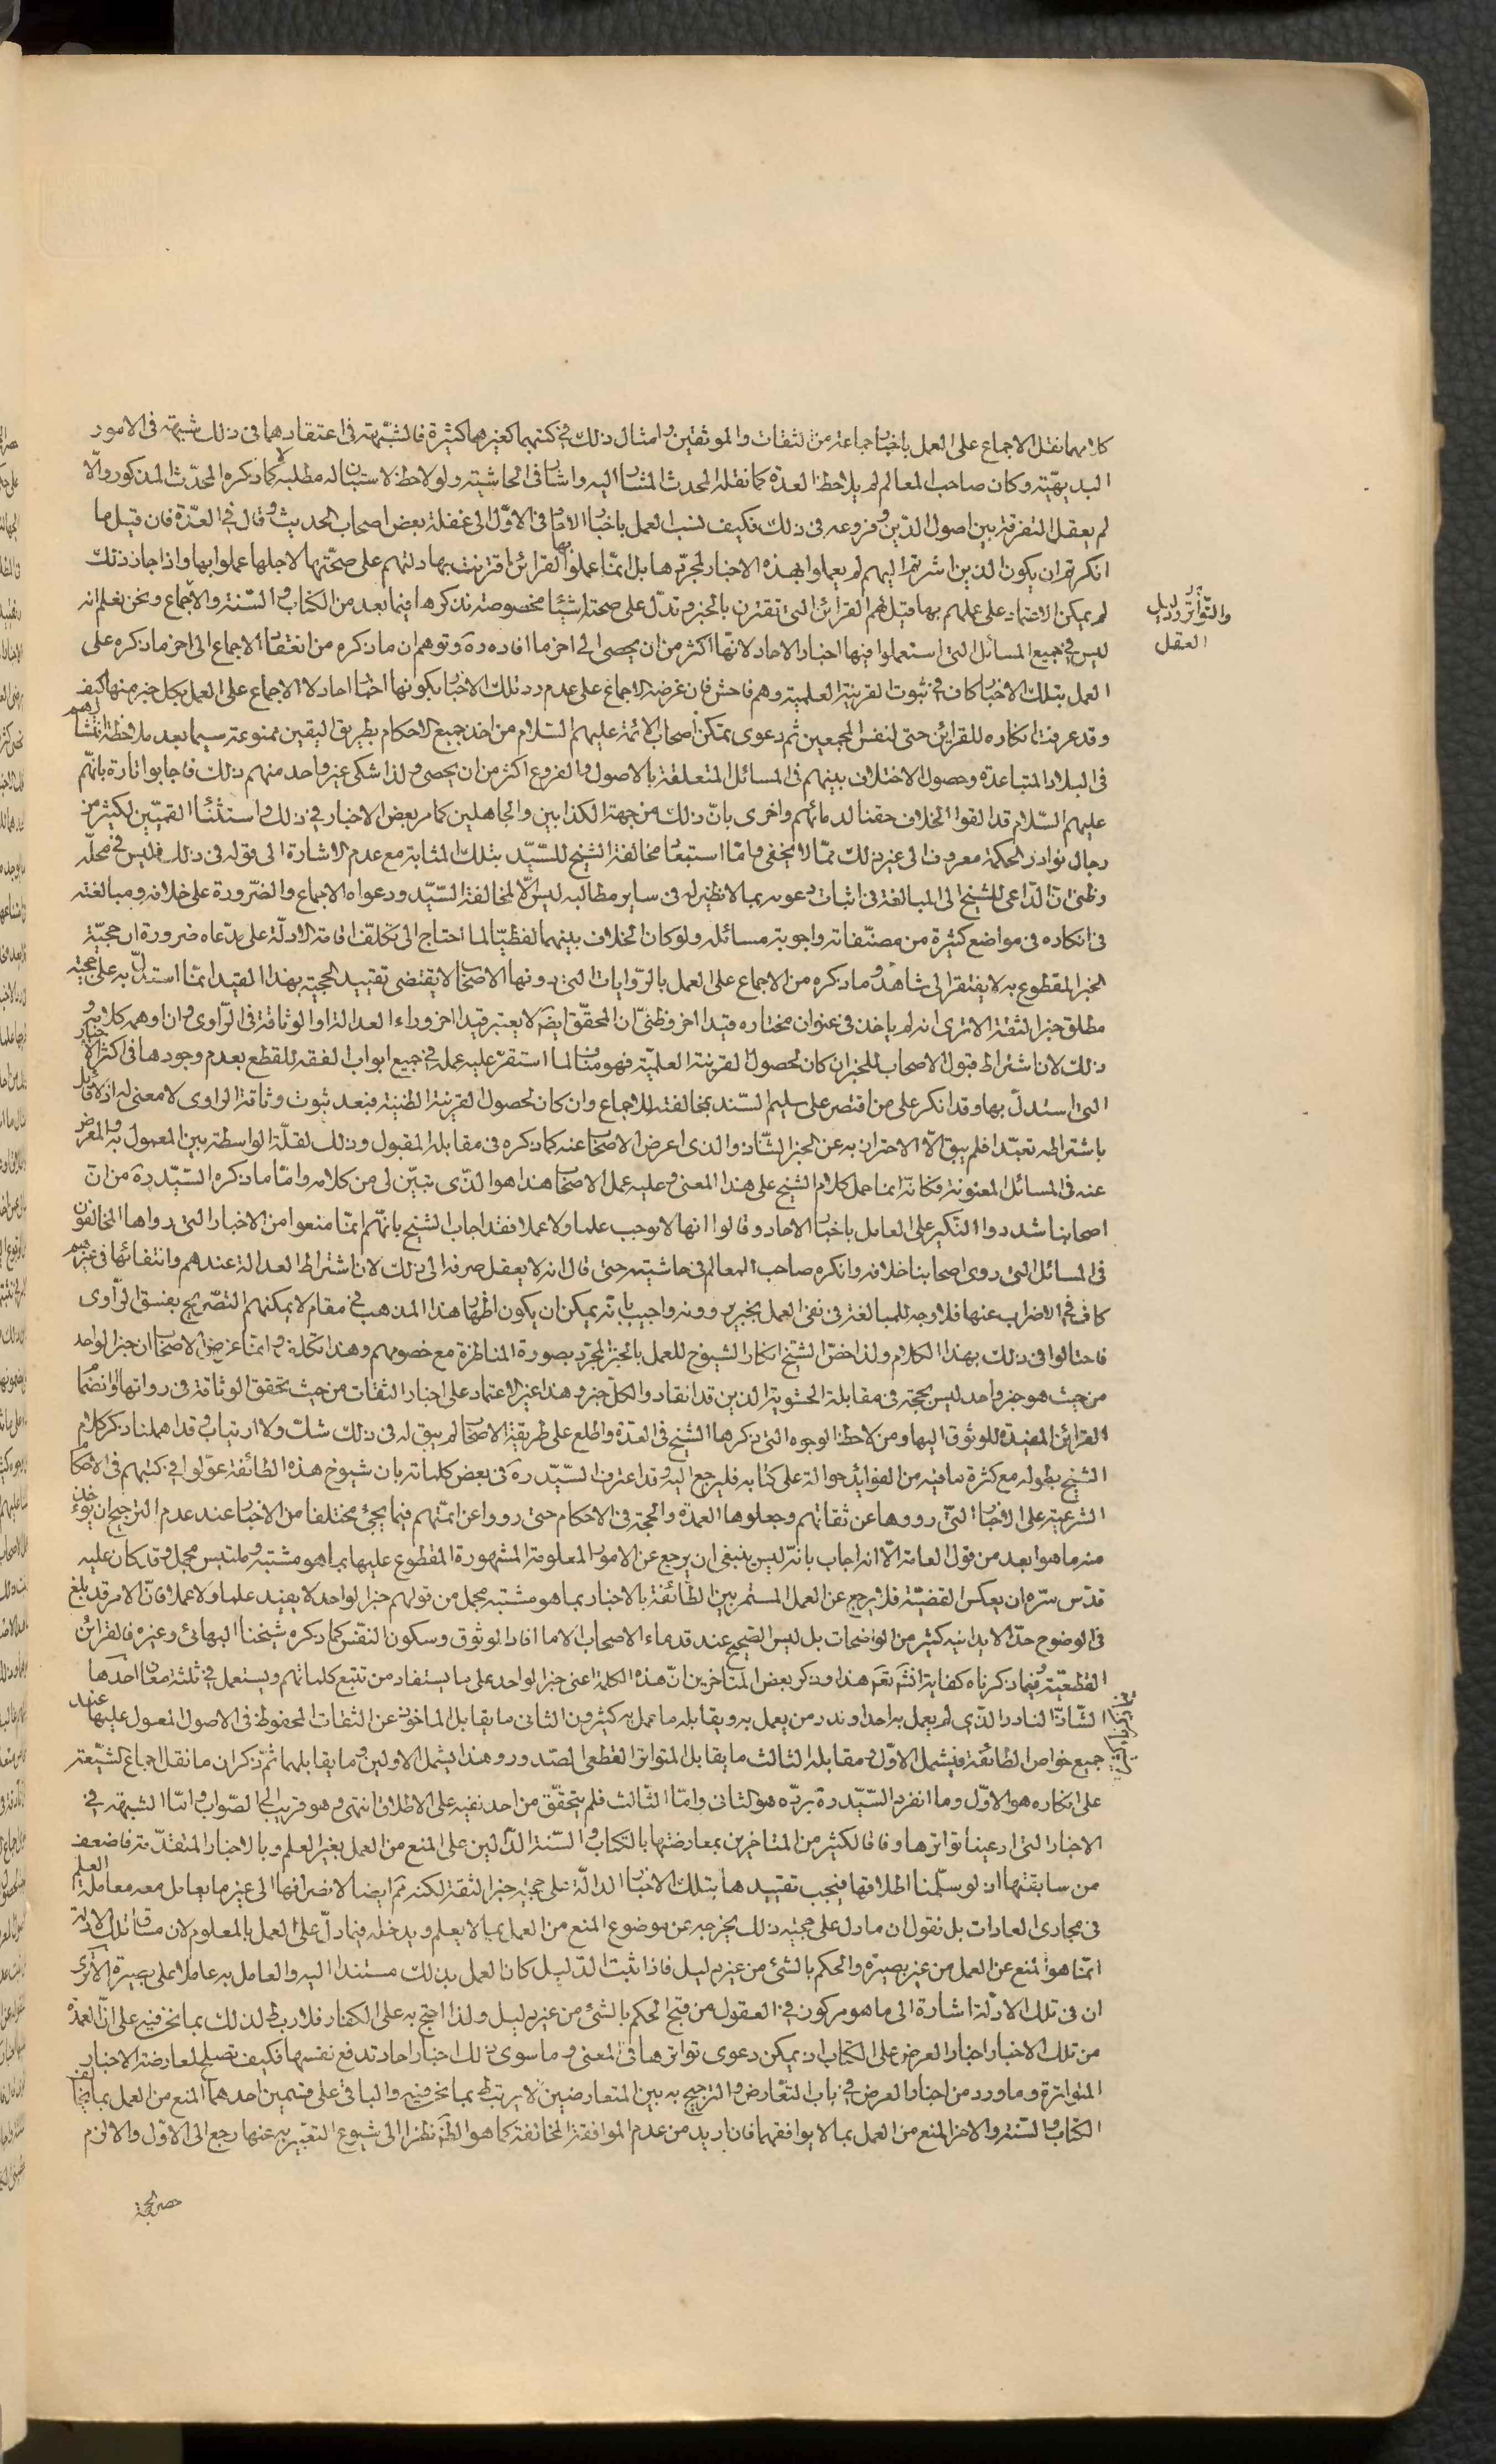 كلامهما نقل الاجماع على العمل باخبار جماعة من الثقات والموثقين وامثال ذلك في كتبهما كغيرهما كثيرة فالشبهة في اعتقادهما في ذلك شبهة في الامور
البديهيّة وكان صاحب المعالم لم يلاحظ العدة كما نقله المحدث المشار اليه واشار في الحاشية ولو لاحظ لاستبان له مطلبه كما ذكره المحدّث المذكور والّا
لم يعقل التفرقة بين اصول الدّين وفروعه في ذلك فكيف نسب العمل باخبار الاحاد في الاوّل الى غفلة بعض اصحاب الحديث وقال في العدّة فان قيل ما
انكرتم ان يكون الذين اشرتم اليهم لم يعملوا بهذه الاخبار لمجرّدها بل انّما عملوا بها لقرائن اقترنت بها دلتهم على صحّتها لاجلها عملوا بها واذا جاز ذلك
لم يمكن الاعتماد على عملهم بها قيل لهم القرائن التي تقترن بالخبر وتدلّ على صحته اشياء مخصوصة نذكرها فيما بعد من الكتاب والسّنة والاجماع ونحن نعلم انه
والتّواتر ودليل
العقل
ليس في جميع المسائل التي استعملوا فيها اخبار الاحاد لانّها اكثر من ان يحصى الى اخر ما افاده ره وتوهم ان ما ذكره من انعقاد الاجماع الى اخر ما ذكره على
العمل بتلك الاخبار كاف في ثبوت القرينة العلمية وهم فاحش فان غرضه الاجماع على عدم رد تلك الاخبار بكونها اخبار احاد لا الاجماع على العمل بكل خبر منها كيف
وقد عرفت انكاره للقرائن حتى لنفس المجمعين ثم دعوى تمكن اصحاب الائمة عليهم السّلام من اخذ جميع الاحكام بطريق اليقين ممنوعة سيما بعد ملاحظة انتشارهم
في البلاد المتباعدة وحصول الاختلاف بينهم في المسائل المتعلقة بالاصول والفروع اكثر من ان يحصى ولذا شكى غير واحد منهم ذلك فاجابوا تارة بانّهم
عليهم السّلام قد القوا الخلاف حقنا لدمائهم واخرى بانّ ذلك من جهة الكذابين والجاهلين كما مر بعض الاخبار في ذلك واستثناء القميّين لكثير من
رجال نوادر الحكمة معروف الى غير ذلك ممّا لا يخفى وامّا استبعاد مخالفة الشيخ للسّيّد بتلك المثابة مع عدم الاشارة الى قوله في ذلك فليس في محلّه
وظنى ان الدّاعى للشيخ الى المبالغة في اثبات دعوىه بما لا نظير له في ساير مطالبه ليس الّا لمخالفة السّيّد ودعواه الاجماع والضّرورة على خلافه ومبالغته
في انكاره في مواضع كثيرة من مصنّفاته واجوبة مسائله ولو كان الخلاف بينهما لفظيّا لما احتاج الى تكلّف اقامة الادلّة على مدّعاه ضرورة ان حجيّة
الخبر المقطوع به لا يفتقر الى شاهد وما ذكره من الاجماع على العمل بالرّوايات التي دونها الاصحاب لا يقتضى تقييد الحجية بهذا القيد انّما استدلّ به على حجية
مطلق خبر الثقة الا ترى انه لم ياخذ في عنوان مختاره قيدا اخر وظنّى ان المحقّق ايضا لا يعتبر قيدا اخر وراء العدالة او الوثاقة في الرّاوى وان اوهمه كلامه
ذلك لان اشتراط قبول الاصحاب للخبر ان كان لحصول القرينة العلميّة فهو مناف لما استقرّ عليه عمله في جميع ابواب الفقه للقطع بعدم وجودها في اكثر الاخبار
التي استدلّ بها وقد انكر على من اقتصر على سليم السّند بمخالفته للاجماع وان كان لحصول القرينة الظنية فبعد ثبوت وثاقة الراوى لا معنى له اذ لا قائل
باشتراطه تعبّدا فلم يبق الّا الاحتراز به عن الخبر الشّاذ والذى اعرض الاصحاب عنه كما ذكره في مقابله المقبول وذلك لقلّة الواسطة بين المعمول به والمعرض
عنه في المسائل المعنونة فكانّه انما حمل كلام الشيخ على هذا المعنى وعليه عمل الاصحاب هذا هو الذّى تبيّن لى من كلامه وامّا ما ذكره السّيّد ره من انّ
اصحابنا شددوا النّكير على العامل باخبار الاحاد وقالوا انها لا يوجب علما ولا عملا فقد اجاب الشيخ بانّهم انّما منعوا من الاخبار التي رواها المخالفون
في المسائل التي روى اصحابنا خلافه وانكره صاحب المعالم في حاشيته حتى قال انه لا يعقل صرفه الى ذلك لان اشتراط العدالة عندهم وانتفائها في غيرهم
كاف في الاضراب عنها فلا وجه للمبالغة في نفى العمل بخبر يروونه واجيب بانّه يمكن ان يكون اظهار هذا المذهب في مقام لا يمكنهم التصّريح بفسق الرّاوى
فاحتالوا في ذلك بهذا الكلام ولذا خصّ الشيخ انكار الشيوخ للعمل بالخبر المجرّد بصورة المناظرة مع خصومهم وهذا تكلف وانما غرض الاصحاب ان خبر الواحد
من حيث هو خبر واحد ليس بحجة في مقابلة الحشوية الذين قد انقادوا لكلّ خبر وهذا غير الاعتماد على اخبار الثقات من حيث تحقق الوثاقة في رواتها وانضمام
القرائن المفيدة للوثوق اليها ومن لاحظ الوجوه التي ذكرها الشيخ في العدّة واطلع على طريقة الاصحاب لم يبق له في ذلك شك ولا ارتياب وقد اهملنا ذكر كلام
الشيخ بطوله مع كثرة ما فيه من الفوائد حوالة على كتابه فليرجع اليه وقد اعترف السّيّد ره في بعض كلماته بان شيوخ هذه الطائفة عوّلوا في كتبهم في الاحكام
الشرعية على الاخبار التّى رووها عن ثقاتهم وجعلوها العمدة والحجة في الاحكام حتى رووا عن ائمّتهم فيما يجئ مختلفا من الاخبار عند عدم الترجيح ان يؤخذ
منه ما هو ابعد من قول العامة الّا انه اجاب بانّه ليس ينبغى ان يرجع عن الامور المعلومة المشهورة المقطوع عليها بما هو مشتبه وملتبس مجمل وقد كان عليه
قدّس سّره ان يعكس القضيّة فلا يرجع عن العمل المستمر بين الطّائفة بالاخبار بما هو مشتبه مجمل من قولهم خبر الواحد لا يفيد علما ولا عملا فانّ الامر قد بلغ
في الوضوح حدّا لا يدانيه كثير من الواضحات بل ليس الصّحيح عند قدماء الاصحاب الا ما افاد الوثوق وسكون النفس كما ذكره شيخنا البهائى وغيره فالقرائن
القطعيّة وفيما ذكرناه كفاية انشاء الله تع هذا وذكر بعض المتاخّرين انّ هذه الكلمة اعنى خبر الواحد على ما يستفاد من تتبع كلماتهم ويستعمل في ثلثة معان احدها
الشّاذّ النادر الذّى لم يعمل به احد او ندر من يعمل به ويقابله ما عمل به كثيرون الثانى ما يقابل الماخوذ عن الثقات المحفوظ في الاصول المعمول عليها عند
جميع خواص الطائفة فيشمل الاوّل ومقابله الثالث ما يقابل المتواتر القطعى الصّدور وهذا يشمل الاولين وما يقابلهما ثم ذكر ان ما نقل اجماع الشّيعة
على انكاره هو الاوّل وما انفرد السّيّد ره بردّه هو الثانى وامّا الثّالث فلم يتحقّق من احد نفيه على الاطلاق انتهى وهو قريب الى الصّواب وامّا الشبهة في
الاخبار التي ادعينا تواترها وفاقا لكثير من المتاخرين بمعارضتها بالكتاب والسّنة الدّالين على المنع من العمل بغير العلم وبالاخبار المتقدّمة فاضعف
من سابقتها اذ لو سلّمنا اطلاقها فيجب تقييدها بتلك الاخبار الدالّة على حجيّة خبر الثقة لكنه ثم ايضا لانصرافها الى غير ما يعامل معه معاملة العلم
في مجارى العادات بل نقول ان ما دل على حجيّه ذلك يخرجه عن موضوع المنع من العمل بما لا يعلم ويدخله فيما دلّ على العمل بالمعلوم لان مساق تلك الادلة
انّما هو المنع عن العمل من غير بصيرة والحكم بالشئ من غير دليل فاذا ثبت الدّليل كان العمل بذلك مستندا اليه والعامل به عاملا على بصيرة الا ترى
ان في تلك الادلّة اشارة الى ما هو مركون في العقول من قبح الحكم بالشئ من غير دليل ولذا احتج به على الكفار فلا ربط لذلك بما نحن فيه على انّ العمدة
من تلك الاخبار اخبار العرض على الكتاب اذ يمكن دعوى تواترها في المعنى وما سوى ذلك اخبار احاد تدفع نفسها فكيف تصلح لمعارضة الاخبار
المتواترة وما ورد من اخبار العرض في باب التعّارض والترجيح به بين المتعارضين لا يرتبط بما نحن فيه والباقى على قسمين احدهما المنع من العمل بما يخالف
الكتاب والسّنة والاخر المنع من العمل بما لا يوافقهما فان اريد من عدم الموافقة المخالفة كما هو الظّ نظرا الى شيوع التعبير به عنها رجع الى الاوّل والا لزم
حصر الحجة